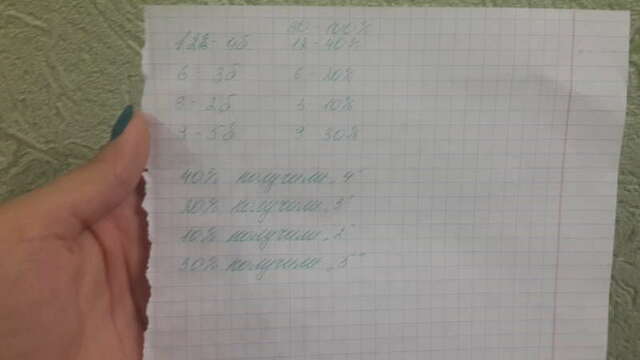 30 - 100%
12 - 4б 12 - 40%
6 - 3б 6 20%
3 - 2б 3 10%
9 - 5б 9 30%
40% получили „4"
20% получили „3"
10% получили „2"
30% получили „5"